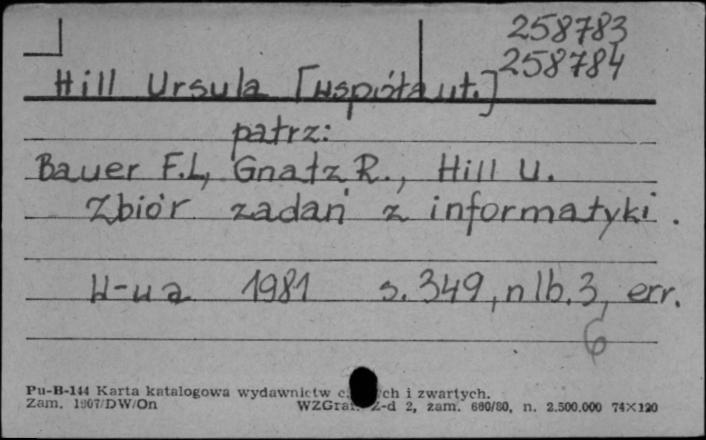 258783
258784
Hill Ursula [współaut.]
patrz:
Bauer F.L, Gnatz R., Hill U.
Zbiór zadań z informatyki.
W-wa 1981 s. 349, nlb. 3, err.
6
Pu-B-144 Karta katalogowa wydawnictw ch i zwartych.
Zam. 1907/DW/On WZGraf. Z-d 2, zam. 660/80, n. 2.500.000 74×120